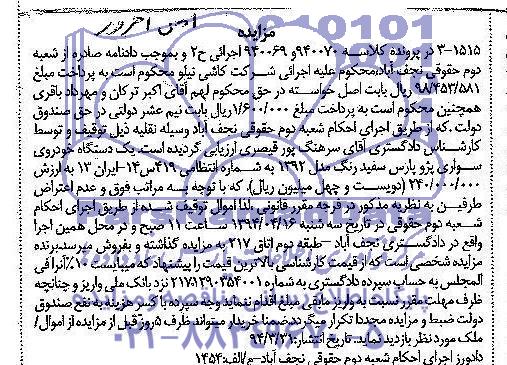 مزایده
۳-۱۵۱۵ در پرونده کلاسه ۹۴۰۰۷۰و ۹۴۰۰۶۹ اجرائی ح۲ و بموجب دادنامه صادره از شعبه
دوم حقوقی نجف آباد،محکوم علیه اجرائی شرکت کاشی نیلو محکوم است به پرداخت مبلغ
۹۸/۴۵۳/۵۸۱ ریال بابت اصل خواسته در حق محکوم لهم آقای اکبر ترکان و مهرداد باقری
همچنین محکوم است به پرداخت مبلغ ۱/۶۰۰/۰۰۰ریال بابت نیم عشر دولتی در حق صندوق
دولت .که از طریق اجرای احکام شعبه دوم حقوقی نجف آباد وسیله نقلیه ذیل توقیف و توسط
کارشناس دادگستری آقای سرهنگ پور قیصری ارزیابی گردیده است. یک دستگاه خودروی
سواری پژو پارس سفید رنگ مدل ۱۳۹۲ به شماره انتظامی ۴۱۹س۱۴-ایران ۱۳ به ارزش
۲۴۰/۰۰۰/۰۰۰ (دویست و چهل میلیون ریال)، که با توجه به مراتب فوق و عدم اعتراض
طرفین به نظریه مذکور در فرجه مقرر قانونی لذا اموال توقیف شده از طریق اجرای احکام
شعبه دوم حقوقی در تاریخ سه شنبه ۱۳۹۴/۰۴/۱۶ ساعت ۱۱ صبح و در محل همین اجرا
واقع در دادگستری نجف آباد –طبقه دوم اتاق ۲۱۷ به مزایده گذاشته و بفروش میرسد.برنده
مزایده شخصی است که از قیمت کارشناسی بالاترین قیمت را پیشنهاد که میبایست ۱۰٪آنرا فی
المجلس به حساب سپرده دادگستری به شماره ۲۱۷۱۲۹۰۳۵۴۰۰۱ نزد بانک ملی واریز و چنانچه
ظرف مهلت مقرر نسبت به واریز مابقی مبلغ اقدام ننماید وجه سپرده با کسر هزینه به نفع صندوق
دولت ضبط و مزایده مجددا تکرار میگردد.ضمنا خریدار میتواند ظرف ۵روز قبل از مزایده از اموال/
ملک مورد نظر بازدید نماید. تاریخ انتشار: ۹۴/۳/۳۱
دادورز اجرای احکام شعبه دوم حقوقی نجف آباد-م/الف:۱۴۵۴
۰۲۱-۸۸۳۴۹۶۷۰-۵